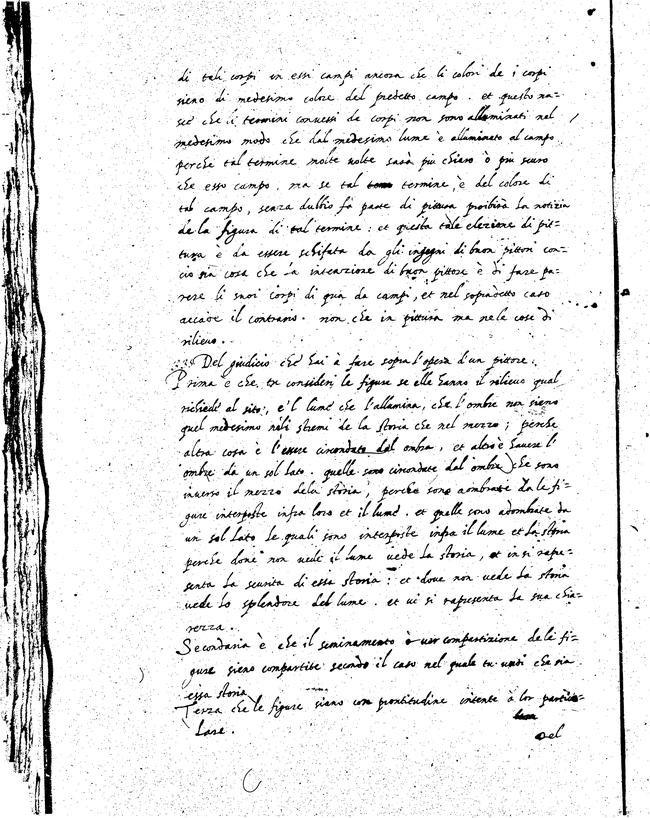 di tali corpi in essi campi ancora che li colori de i corpi
sieno di medesimo colore del predetto campo . et questo na=
sce che li termini convessi de corpi non sono alluminati nel
medesimo modo che dal medesimo lume è alluminato al campo
perche tal termine molte volte sarà piu chiaro ò piu scuro
che esso campo, ma se tal termine, è del colore di
tal campo, senza dubbio fà parte di pittura proibirà la notizia
de la figura di tal termine : et questa tale elezione di pit=
tura è da essere schifata da gli ingegni di buon pittori con=
cio sia cosa che la intenzione di buon pittore è di fare pa=
rere li suoi corpi di qua da campi, et nel sopradetto caso
accade il contrario . non che in pittura ma nele cose di
rilievo .
Del giudicio che hai à fare sopra l'opera d'un pittore .
Prima è che, tu consideri le figure se elle hanno il rilievo qual
richiede al sito, e'l lume che l'allumina, che l'ombre non sieno
quel medesimo neli stremi de la storia che nel mezzo ; perche
altra cosa è l'essere circondato dal ombra, et altro è havere l'
ombre da un sol lato . quelle sono circondate dal'ombre che sono
inverso il mezzo dela storia, perche sono aombrate da le fi=
gure interposte infra loro et il lume . et quelle sono adombrate da
un sol lato le quali sono interposte infra il lume et la storia
perche dove non vede il lume vede la storia, et in si rapre=
senta la scurità di essa storia : et dove non vede la storia
vede lo splendore del lume . et vi si rapresenta la sua chia=
rezza .
Secondaria è che il seminamento ò ver compartizione dele fi=
gure sieno compartite secondo il caso nel quale tu vuoi che sia
essa storia
Terza che le figure siano con prontitudine intente à lor partico=
lare .
Del